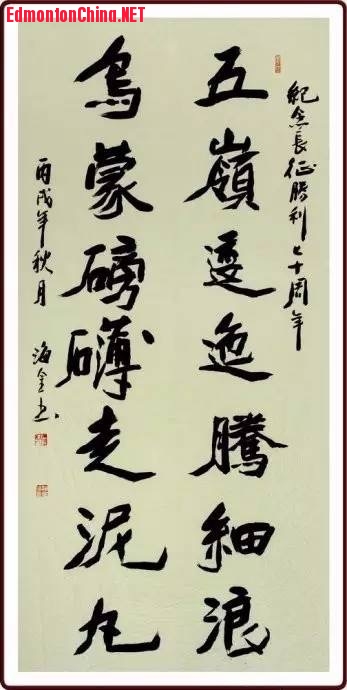 EdmontonChina.NET
紀念長征勝利七十周年
五嶺逶迤騰細浪
烏蒙磅礴走泥丸
丙戌年秋月
海金书